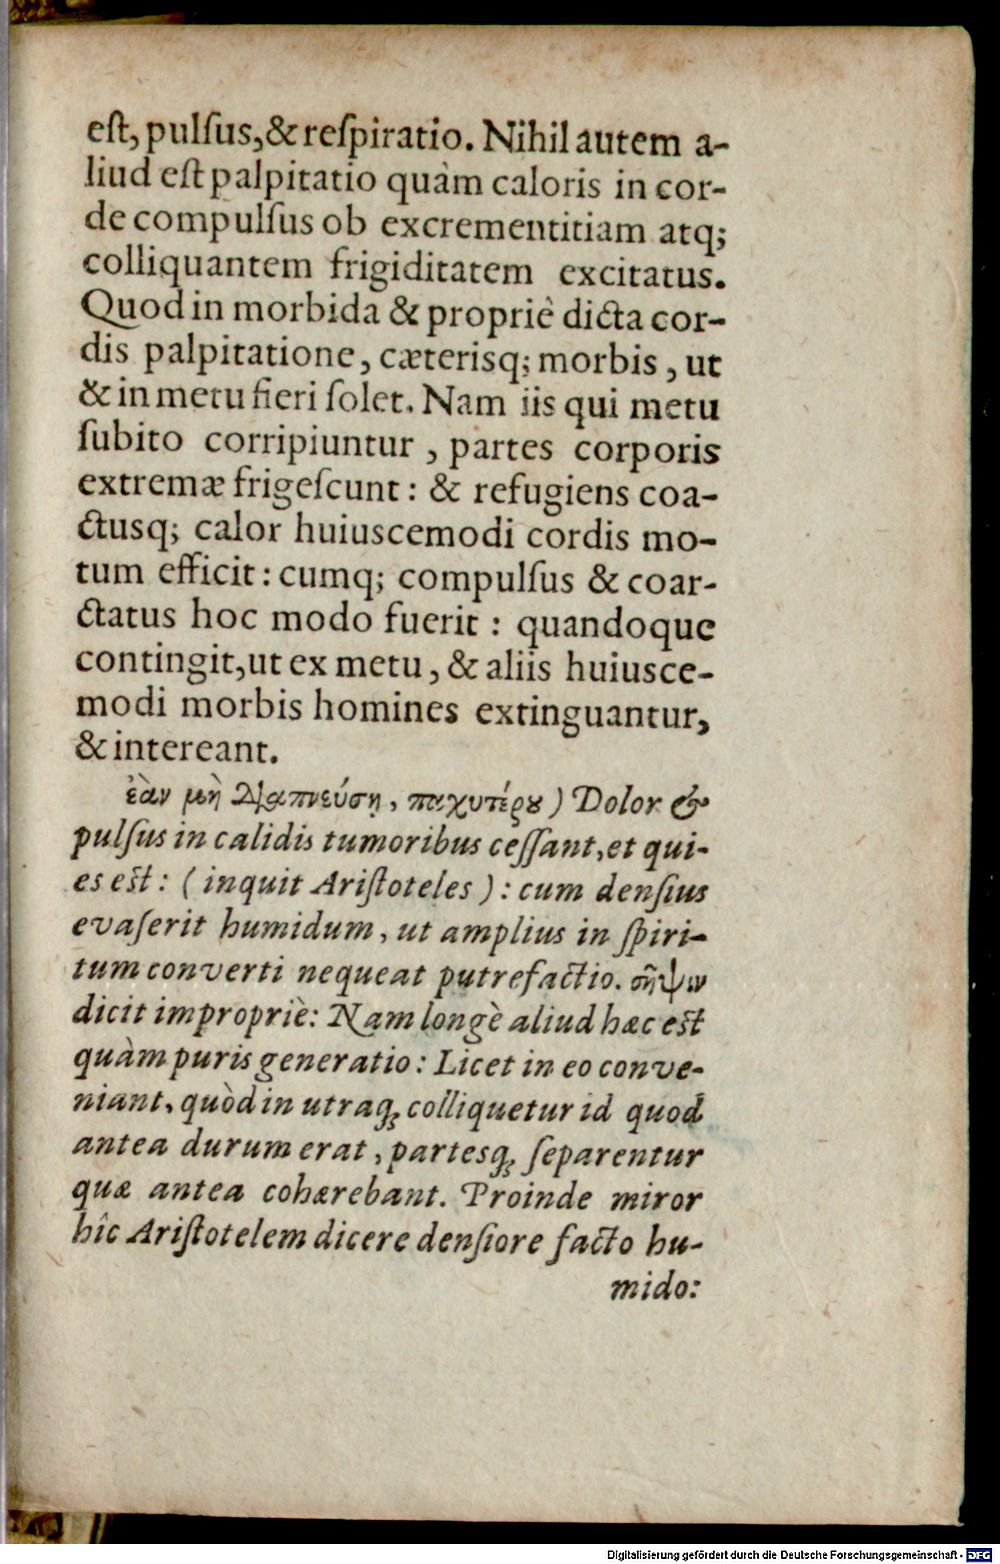 est, pulſus, & reſpiratio. Nihil autem a-
liud eſt palpitatio quàm caloris in cor-
de compulſus ob excrementitiam atq;
colliquantem frigiditatem excitatus.
Quod in morbida & propriè dicta cor-
dis palpitatione, cæterisq; morbis, ut
& in metu fieri ſolet. Nam iis qui metu
ſubito corripiuntur, partes corporis
extremæ frigeſcunt: & refugiens coa-
ctusq; calor huiuscemodi cordis mo-
tum efficit: cumq; compulſus & coar-
ctatus hoc modo fuerit: quandoque
contingit, ut ex metu, & aliis huiusce-
modi morbis homines extinguantur,
& intereant.
ἐὰν μὴ διαπνεύσῃ, παχυτέρου) Dolor &
pulſus in calidis tumoribus ceſſant, et qui-
es eſt: (inquit Ariſtoteles): cum denſius
evaſerit humidum, ut amplius in ſpiri-
tum converti nequeat putrefactio. σῆψιν
dicit impropriè: Nam longè aliud hæc eſt
quàm puris generatio: Licet in eo conve-
niant, quòd in utraq; colliquetur id quod
antea durum erat, partesq; ſeparentur
quæ antea cohærebant. Proinde miror
hîc Ariſtotelem dicere denſiore facto hu-
mido:
Digitalisierung gefördert durch die Deutsche Forschungsgemeinschaft - DFG